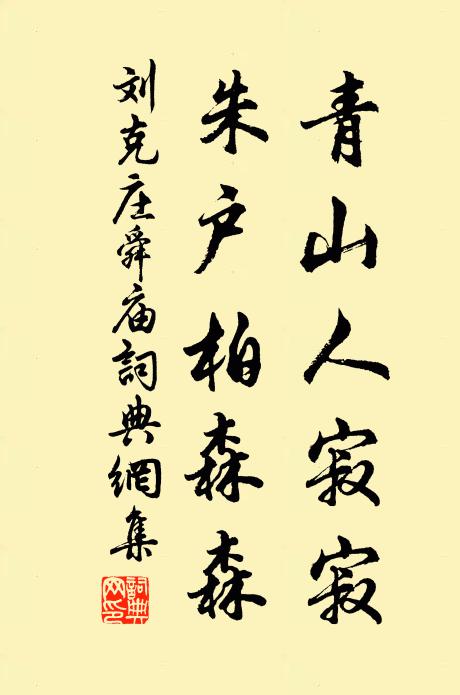 青山人寂寂
朱户柏森森
刘克庄舜庙詞典網集
詞典网印